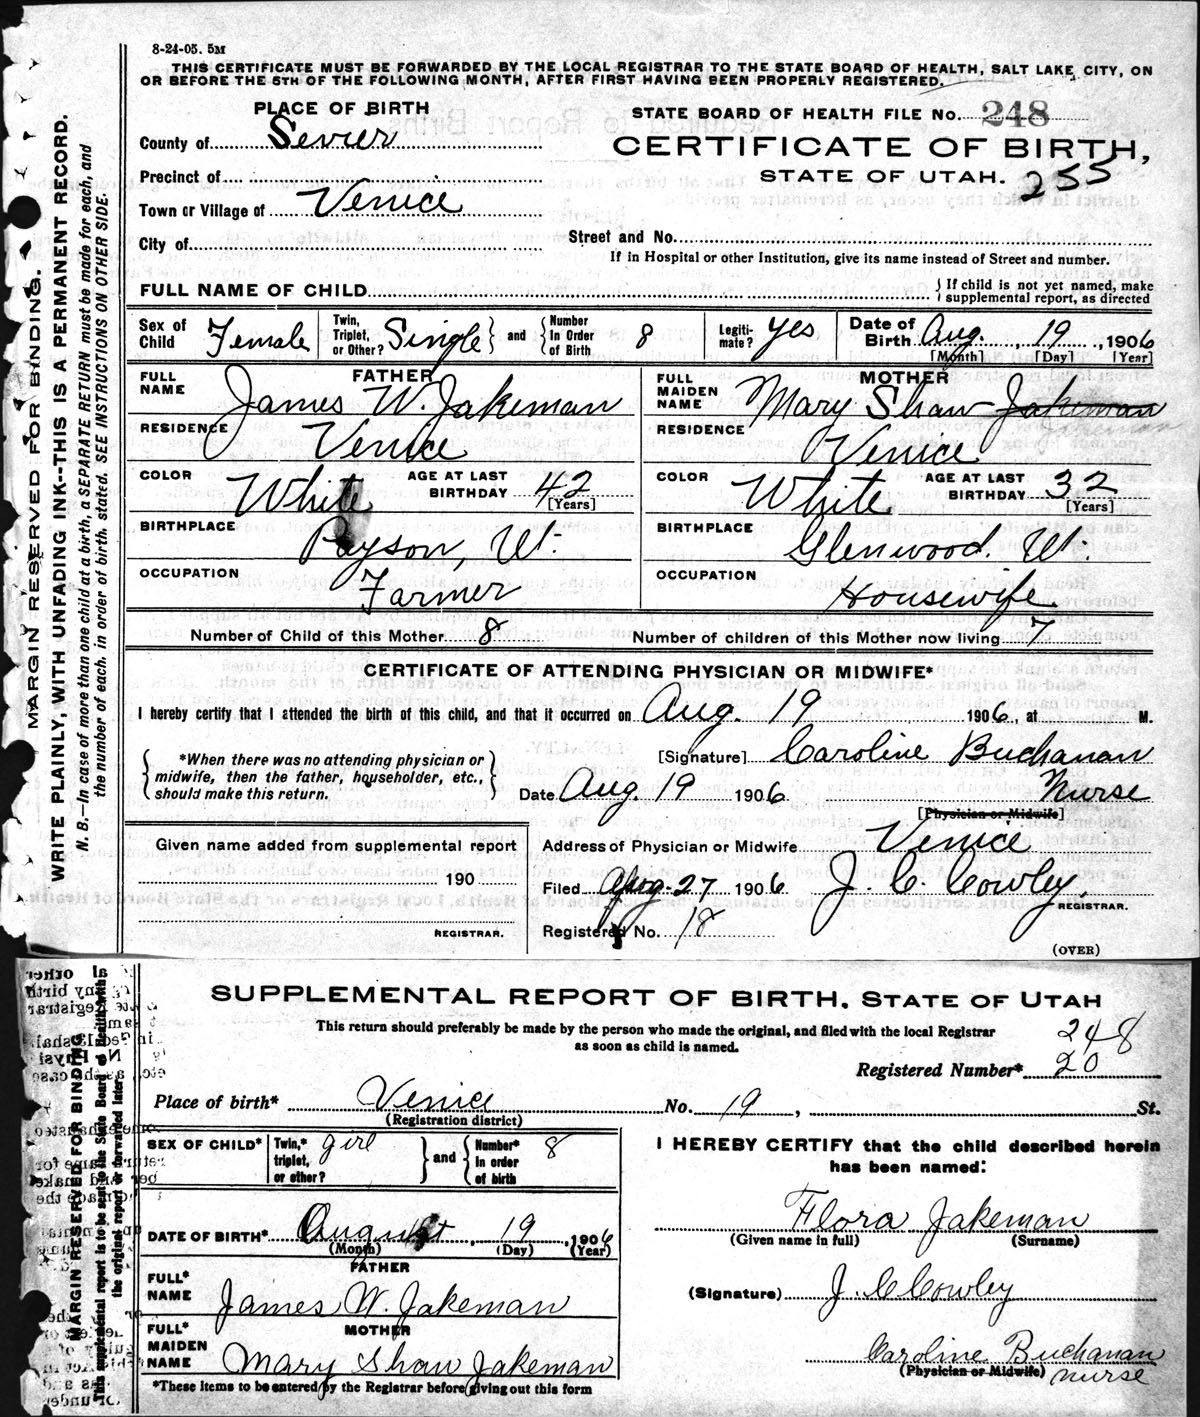 8-24-05. 5M
THIS CERTIFICATE MUST BE FORWARDED BY THE LOCAL REGISTRAR TO THE STATE BOARD OF HEALTH, SALT LAKE CITY, ON
OR BEFORE THE 5TH OF THE FOLLOWING MONTH, AFTER FIRST HAVING BEEN PROPERLY REGISTERED.
PLACE OF BIRTH
STATE BOARD OF HEALTH FILE No. 248
County of Sevier
CERTIFICATE OF BIRTH,
STATE OF UTAH. 255
Precinct of
Town or Village of Venice
City of
Street and No.
If in Hospital or other Institution, give its name instead of Street and number.
FULL NAME OF CHILD
{If child is not yet named, make
supplemental report, as directed
Sex of Child Female
Twin, Triplet, or Other? Single} and {Number In Order of Birth 8
Legitimate? yes
Date of Birth Aug. 19, 1906
[Month] [Day] [Year]
FATHER
FULL NAME James W. Jakeman
RESIDENCE Venice
COLOR White
AGE AT LAST BIRTHDAY 42
[Years]
BIRTHPLACE Payson, Ut.
OCCUPATION Farmer
MOTHER
FULL MAIDEN NAME Mary Shaw Jakeman
RESIDENCE Venice
COLOR White
AGE AT LAST BIRTHDAY 32
[Years]
BIRTHPLACE Glenwood. Ut.
OCCUPATION Housewife
Number of Child of this Mother 8
Number of children of this Mother now living 7
CERTIFICATE OF ATTENDING PHYSICIAN OR MIDWIFE*
I hereby certify that I attended the birth of this child, and that it occurred on Aug. 19 1906, at M.
{*When there was no attending physician or
midwife, then the father, householder, etc.,
should make this return.}
[Signature] Caroline Buchanan
Date Aug. 19 1906 Nurse
[Physician or Midwife]
Given name added from supplemental report
190
REGISTRAR.
Address of Physician or Midwife Venice
Filed Aug-27 1906 J. C. Cowley.
REGISTRAR.
Registered No. 18
(OVER)
MARGIN RESERVED FOR BINDING.
WRITE PLAINLY, WITH UNFADING INK--THIS IS A PERMANENT RECORD.
N. B.—In case of more than one child at a birth, a SEPARATE RETURN must be made for each, and
the number of each, in order of birth, stated. SEE INSTRUCTIONS ON OTHER SIDE.
SUPPLEMENTAL REPORT OF BIRTH, STATE OF UTAH
This return should preferably be made by the person who made the original, and filed with the local Registrar
as soon as child is named.
248
Registered Number* 20
Place of birth* Venice No. 19, St.
(Registration district)
SEX OF CHILD*
Twin,* triplet, or other? girl } and { Number* in order of birth 8
DATE OF BIRTH* August 19, 1906
(Month) (Day) (Year)
FATHER
FULL* NAME James W. Jakeman
MOTHER
FULL* MAIDEN NAME Mary Shaw Jakeman
*These items to be entered by the Registrar before giving out this form
I HEREBY CERTIFY that the child described herein
has been named:
Flora Jakeman
(Given name in full) (Surname)
(Signature) J. C Cowley
Caroline Buchanan
(Physician or Midwife) nurse
MARGIN RESERVED FOR BINDING
This supplemental report is to be sent to the State Board of Health with
the original report or forwarded later.